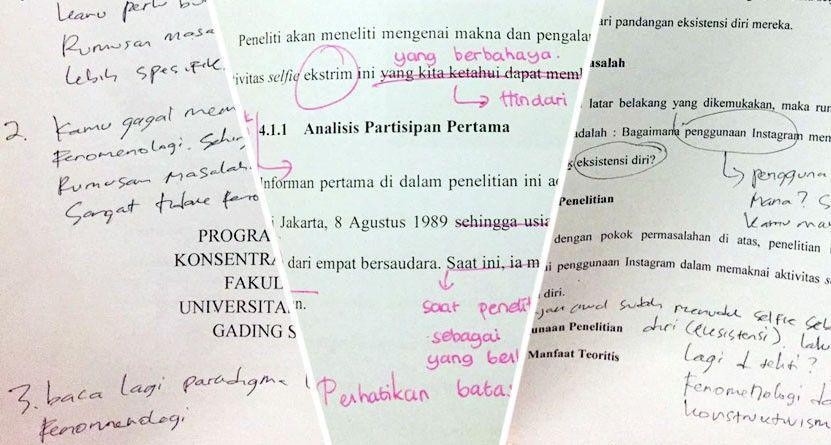 Kamu perlu
Rumusan masa
lebih spesifik.
2. Kamu gagal mem
fenomenologi.
Rumusan masalah
Sangat
PROGRA
KONSENTRA
FAKUL
UNIVERSITA
GADING S
3. baca lagi paradigma
fenomenologi
Peneliti akan meneliti mengenai makna dan pengala
yang berbahaya.
ivitas selfie ekstrim ini yang kita ketahui dapat meml
Hindari
4.1.1 Analisis Partisipan Pertama
Informan pertama di dalam penelitian ini a
i Jakarta, 8 Agustus 1989 sehingga usia
dari empat bersaudara. Saat ini, ia m
n.
saat penelit
sebagai
yang be
Perhatikan bata
ari pandangan eksistensi diri mereka.
asalah
latar belakang yang dikemukakan, maka rum
adalah : Bagaimana penggunaan Instagram men
eksistensi diri?
pengguna
mana? S
kamu ma
Penelitian
dengan pokok permasalahan di atas, penelitian
i penggunaan Instagram dalam memaknai aktivitas s
diri.
awal sudah selfie seb
unaan Penelitian diri (eksistensi). lalu
Manfaat Teoritis lagi d teliti?
Fenomenologi da
konstruktivism